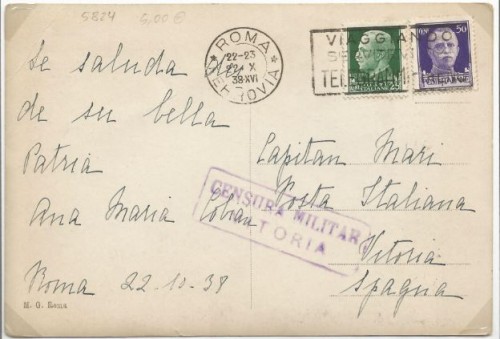 5824 5,00
ROMA
22-23
22 X
38-XVI
FERROVIA
VIAGGIANDO
TELEGRAMMI
50
Se saluda
de su bella
Patria
Ana Maria
Roma 22.10.38
M. G. Roma
CENSURA MILITAR
VITORIA
Capitan Mari
Posta Italiana
Vitoria
Spagna